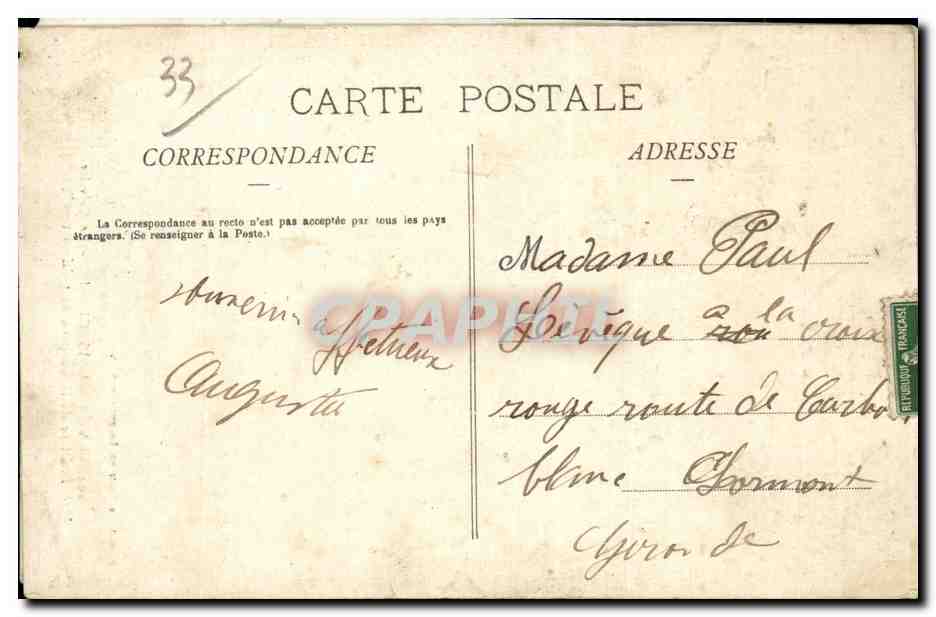 33
CARTE POSTALE
CORRESPONDANCE
La Correspondance au recto n'est pas acceptée par tous les pays
étrangers. (Se renseigner à la Poste.)
affétueux
Augusta
CPAPHIL
ADRESSE
Madame Paul
Lévêque a la croix
rouge route de Carbo
blanc Lormont
Gironde
REPUBLIQUE FRANÇAISE